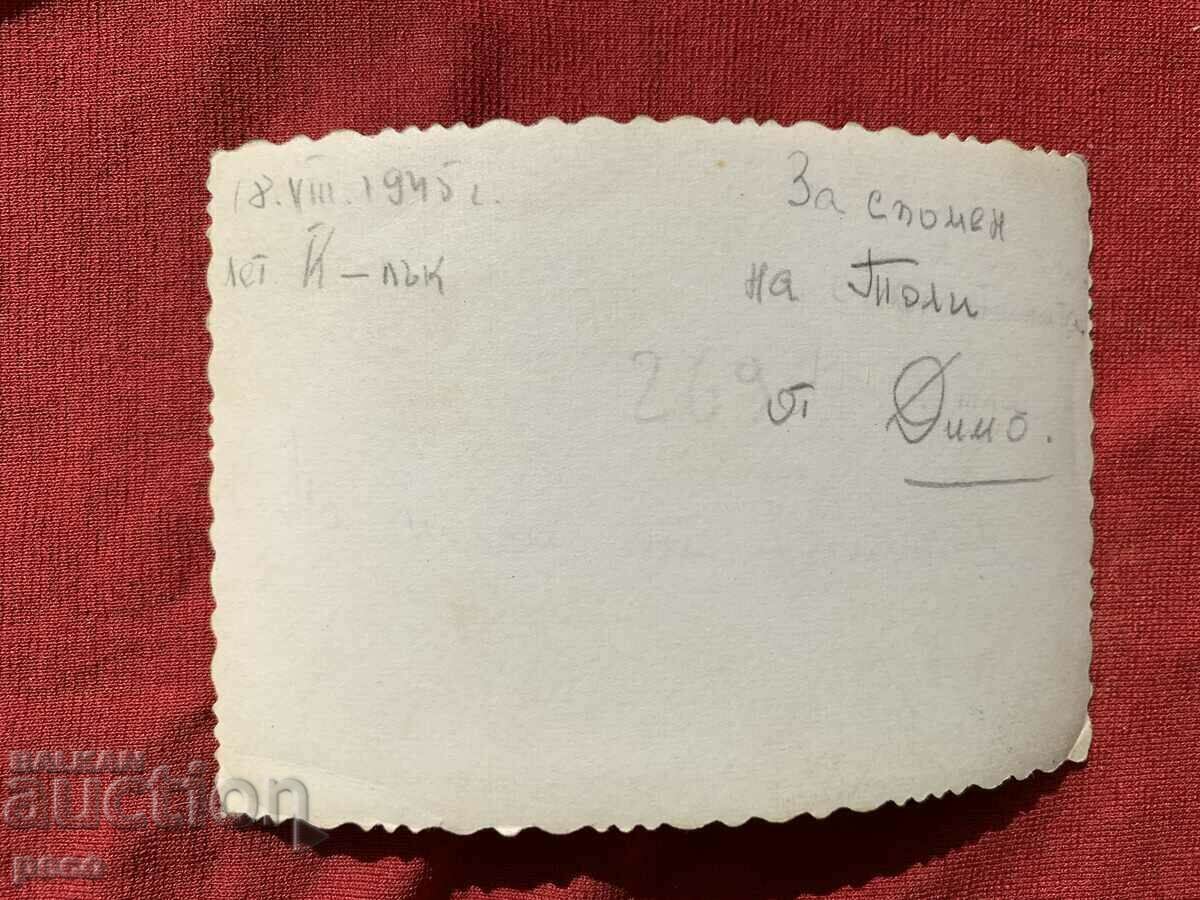 18.VIII.1945 г.
лет. К-пък
За спомен
на Толи
от Димо.
269
BALKAN
auction
peco